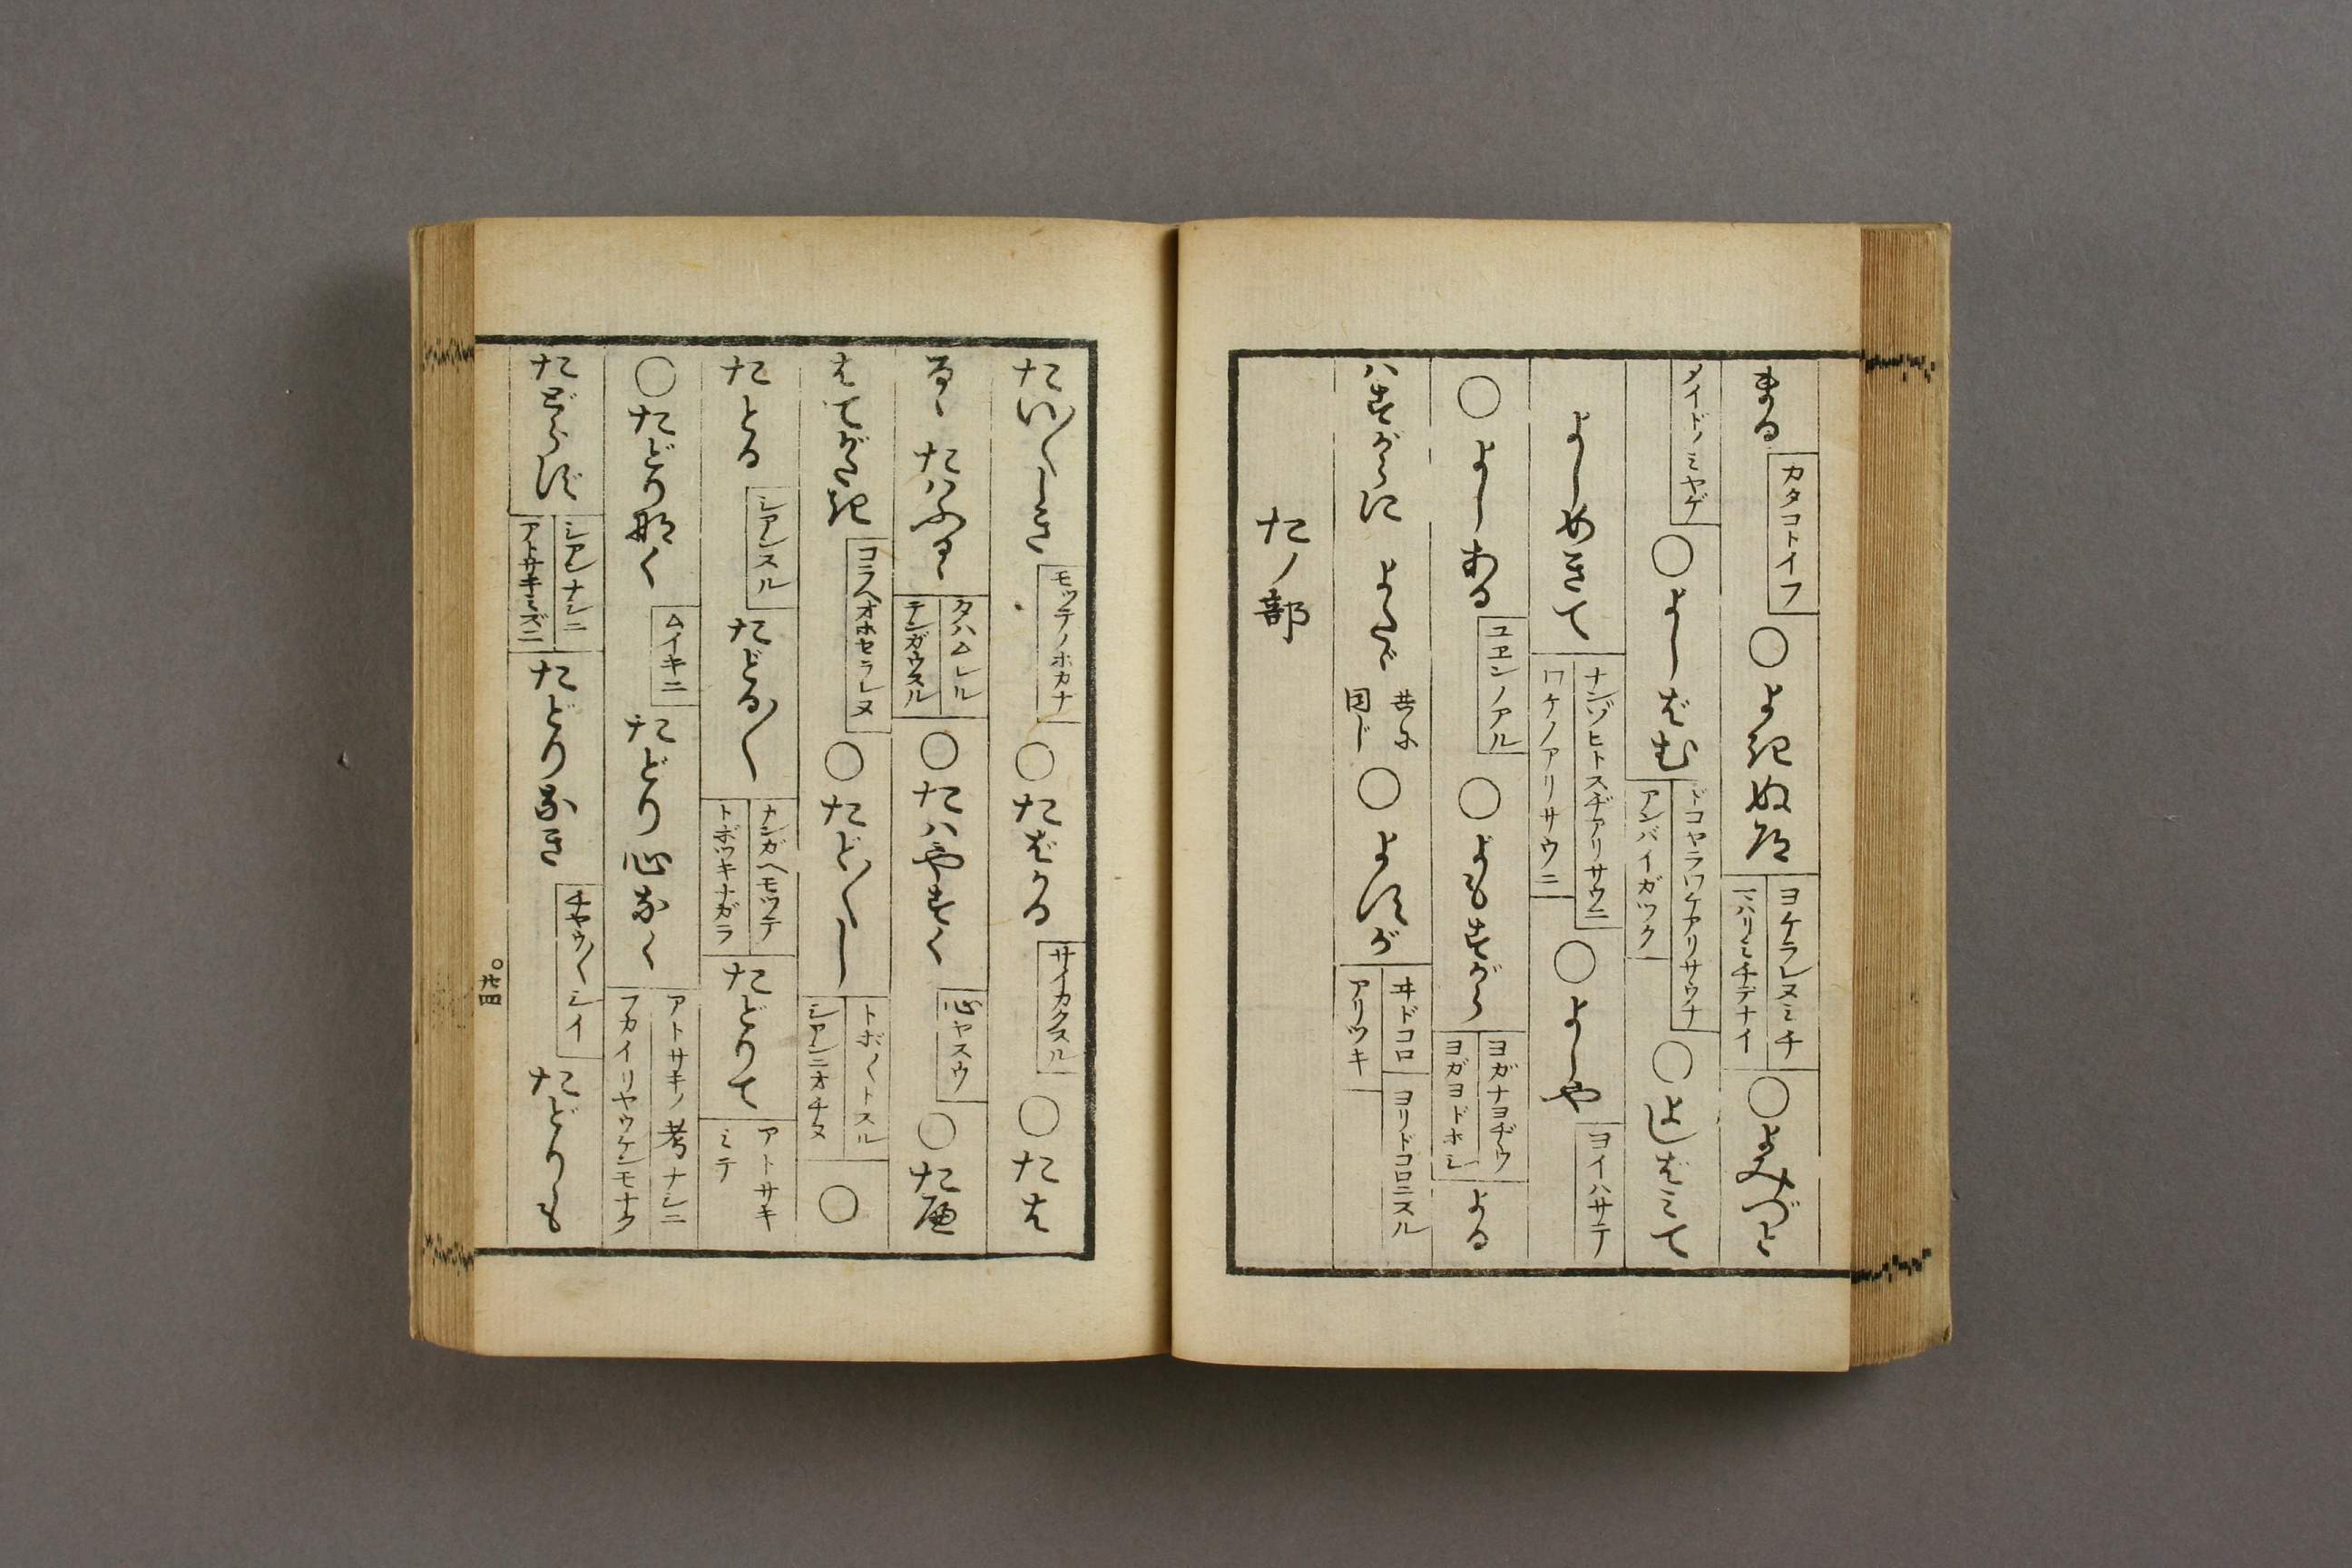 まる カタコトイフ ○よきぬ道 ヨケラレヌミチ マハリミチデナイ ○よみづと
メイドノミヤゲ ○よしばむ ドコヤラワケアリサウナ アンバイガツク ○よしばミて
よしめきて ナンゾヒトスヂアリサウニ ワケノアリサウニ ○よしや ヨイハサテ
○よしある ユヱンノアル ○よもすがら ヨガナヨヂウ ヨガヨドホシ よる
ハすがらに よたゞ 共ニ同じ ○よすが ヰドコロ アリツキ ヨリドコロニスル
たノ部
たい〱しき モッテノホカナ ○たばかる サイカクスル ○たは
るゝ たハふるゝ タハムレル テンガウスル ○たハやすく 心ヤスウ ○たへ
はてがたき コラヘオホセラレヌ ○たど〱し トボ〱トスル シアンニオチヌ ○
たとる シアンスル たどる〱 ナンガヘモツテ トボツキナガラ たどりて アトサキミテ
○たどり那く ムイキニ たどり心なく アトサキノ考ナシニ フカイリヤウケンモナク
たどらず シアンナシニ アトサキミズニ たどりなき チヤウ〱シイ たどりも
○廿四